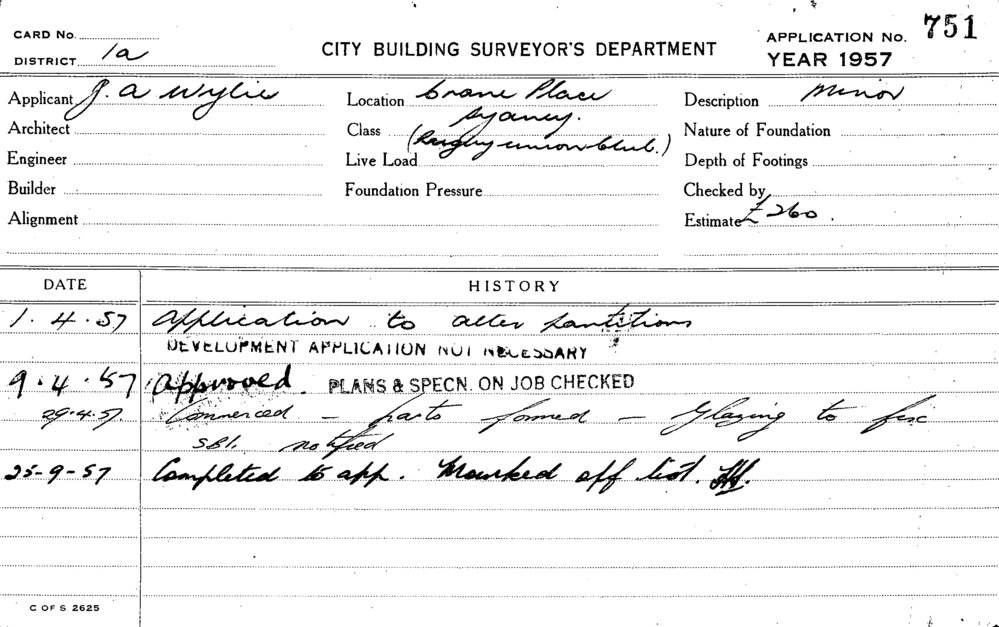 CARD No.
DISTRICT 1a
CITY BUILDING SURVEYOR'S DEPARTMENT
APPLICATION No. 751
YEAR 1957
Applicant J. A Wylie
Architect
Engineer
Builder
Alignment
Location Crane Place
Sydney.
Class (Rugby union Club.)
Live Load
Foundation Pressure
Description Minor
Nature of Foundation
Depth of Footings
Checked by
Estimate £ 260.
DATE HISTORY
1.4.57 Application to alter partitions
DEVELOPMENT APPLICATION NOT NECESSARY
9.4.57 Approved. PLANS & SPECN. ON JOB CHECKED
29.4.57. Commenced – parts formed – Glazing to
SBI. notified
25-9-57 Completed to app. Marked off list.
C OF S 2625